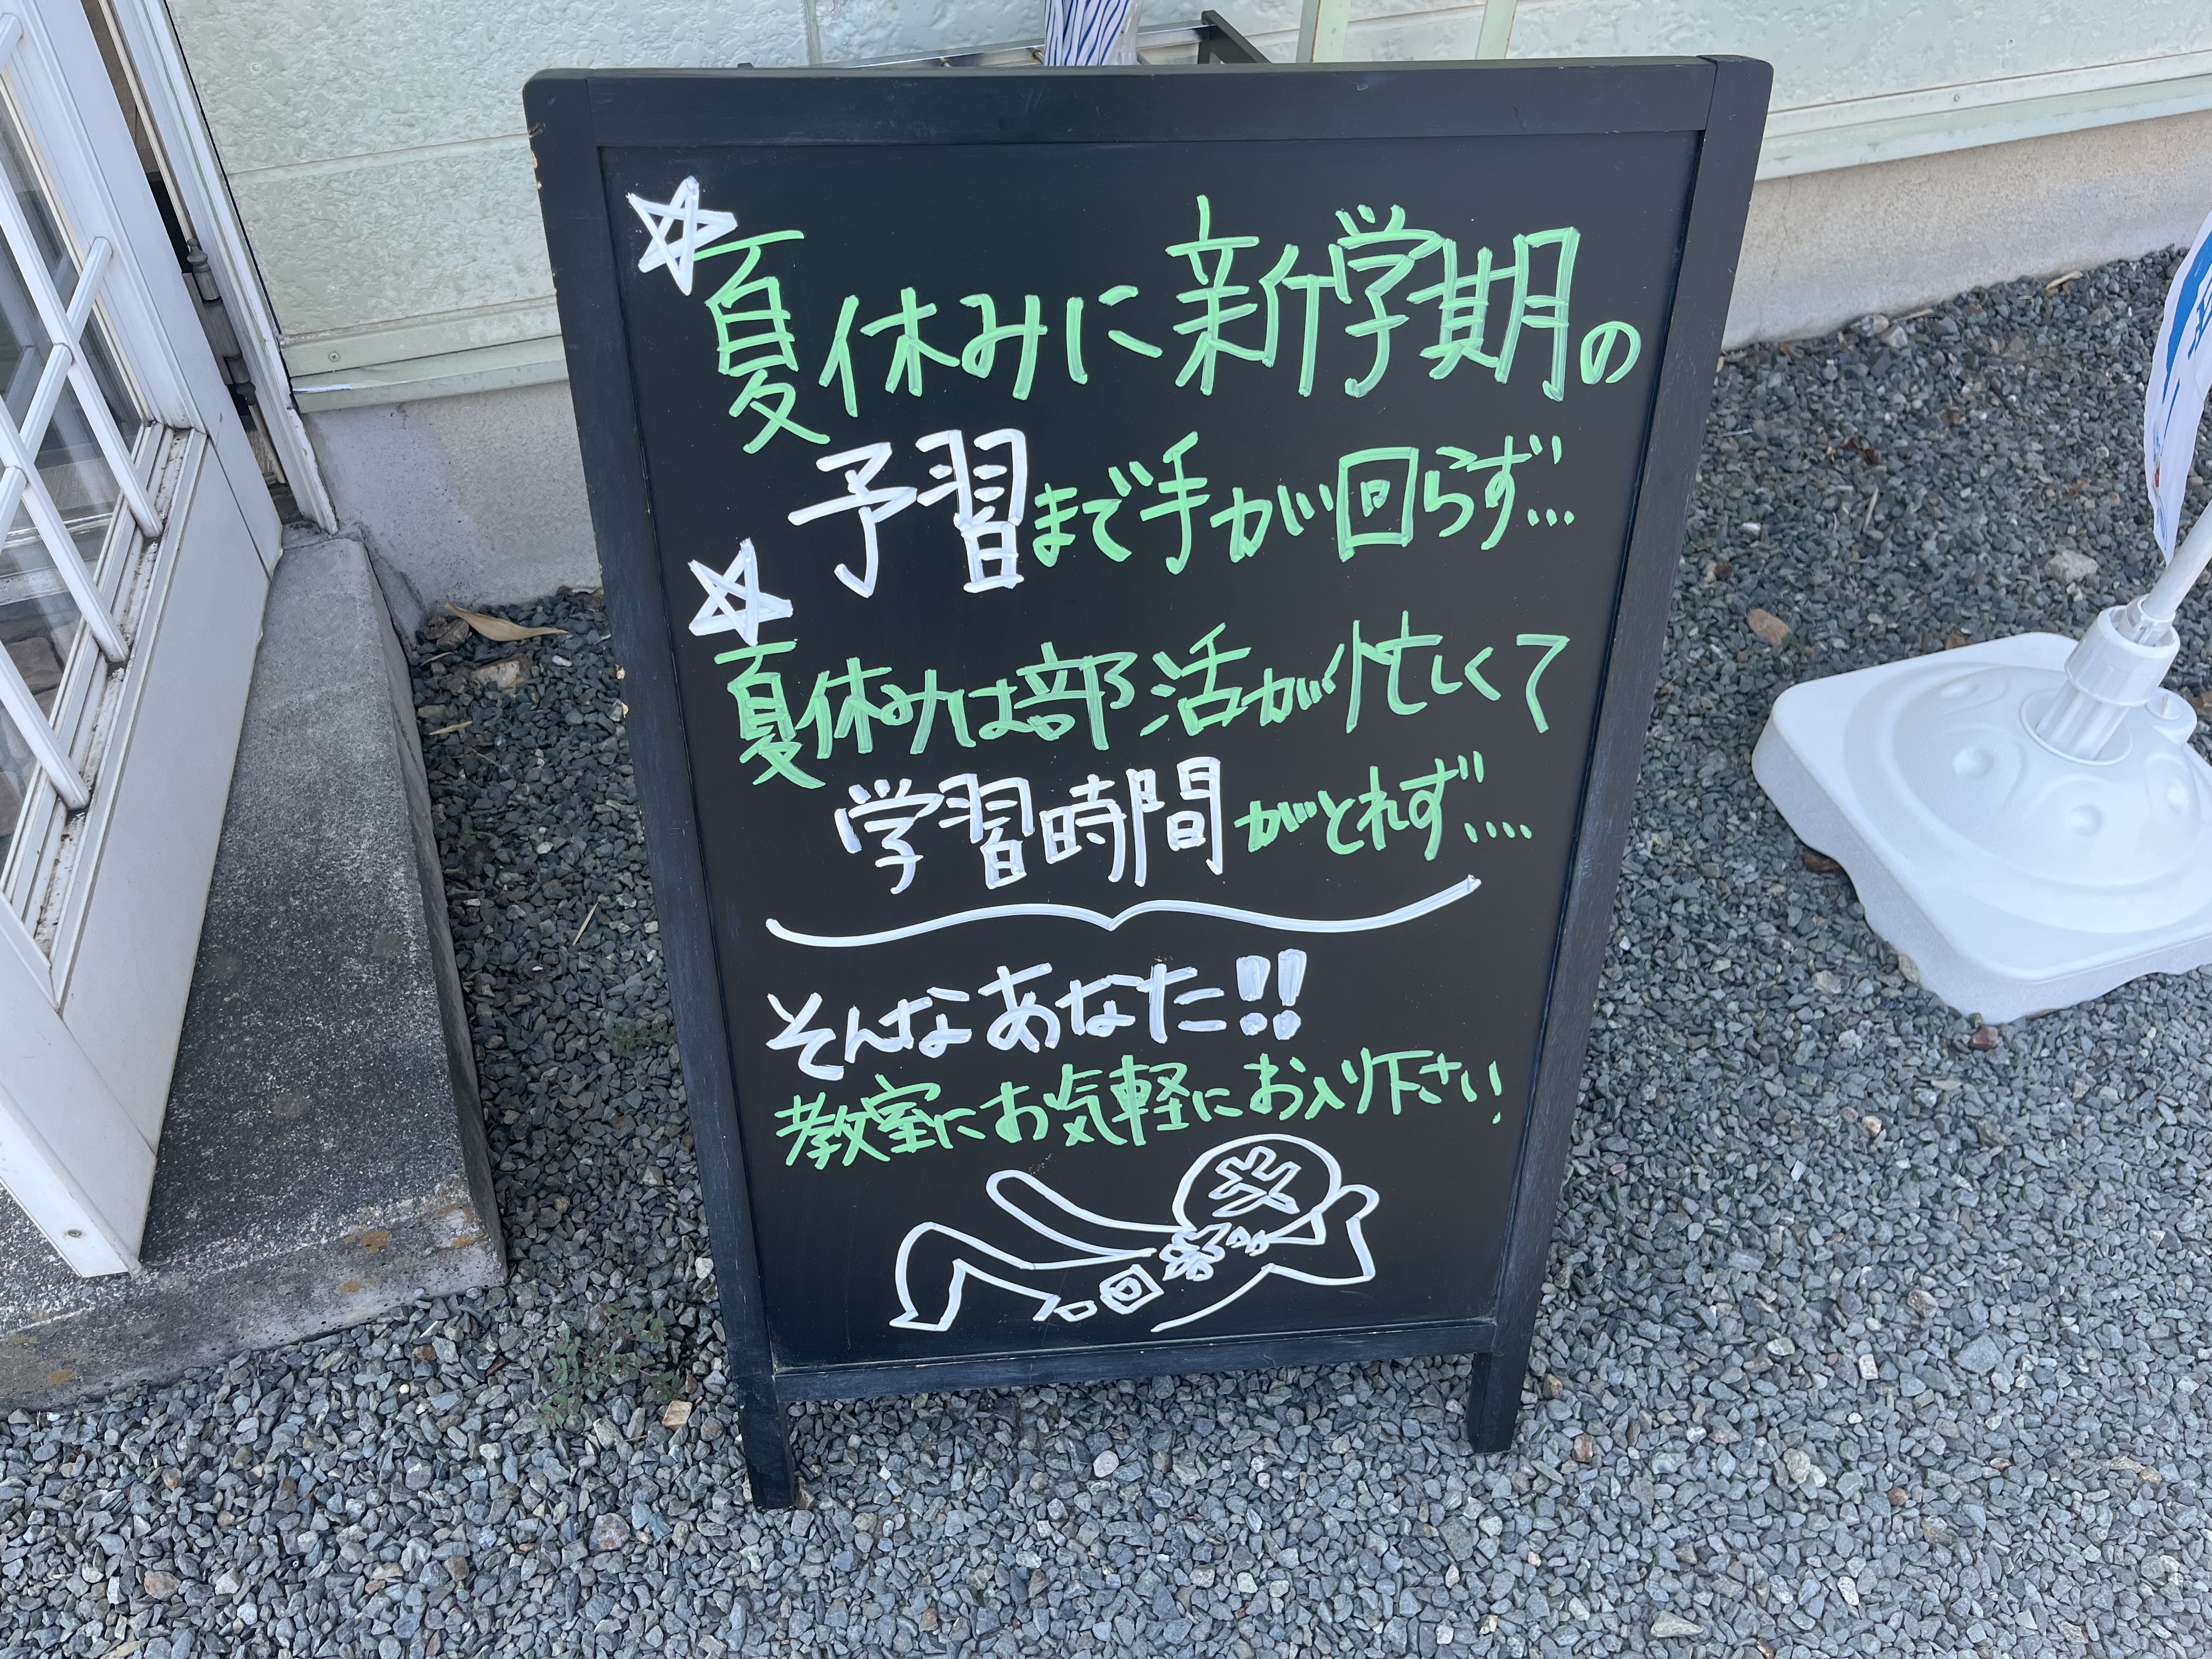 ☆夏休みに新学期の
予習まで手が回らず…
☆夏休みは部活が忙しくて
学習時間がとれず‥‥
そんなあなた!!
教室にお気軽にお入り下さい!